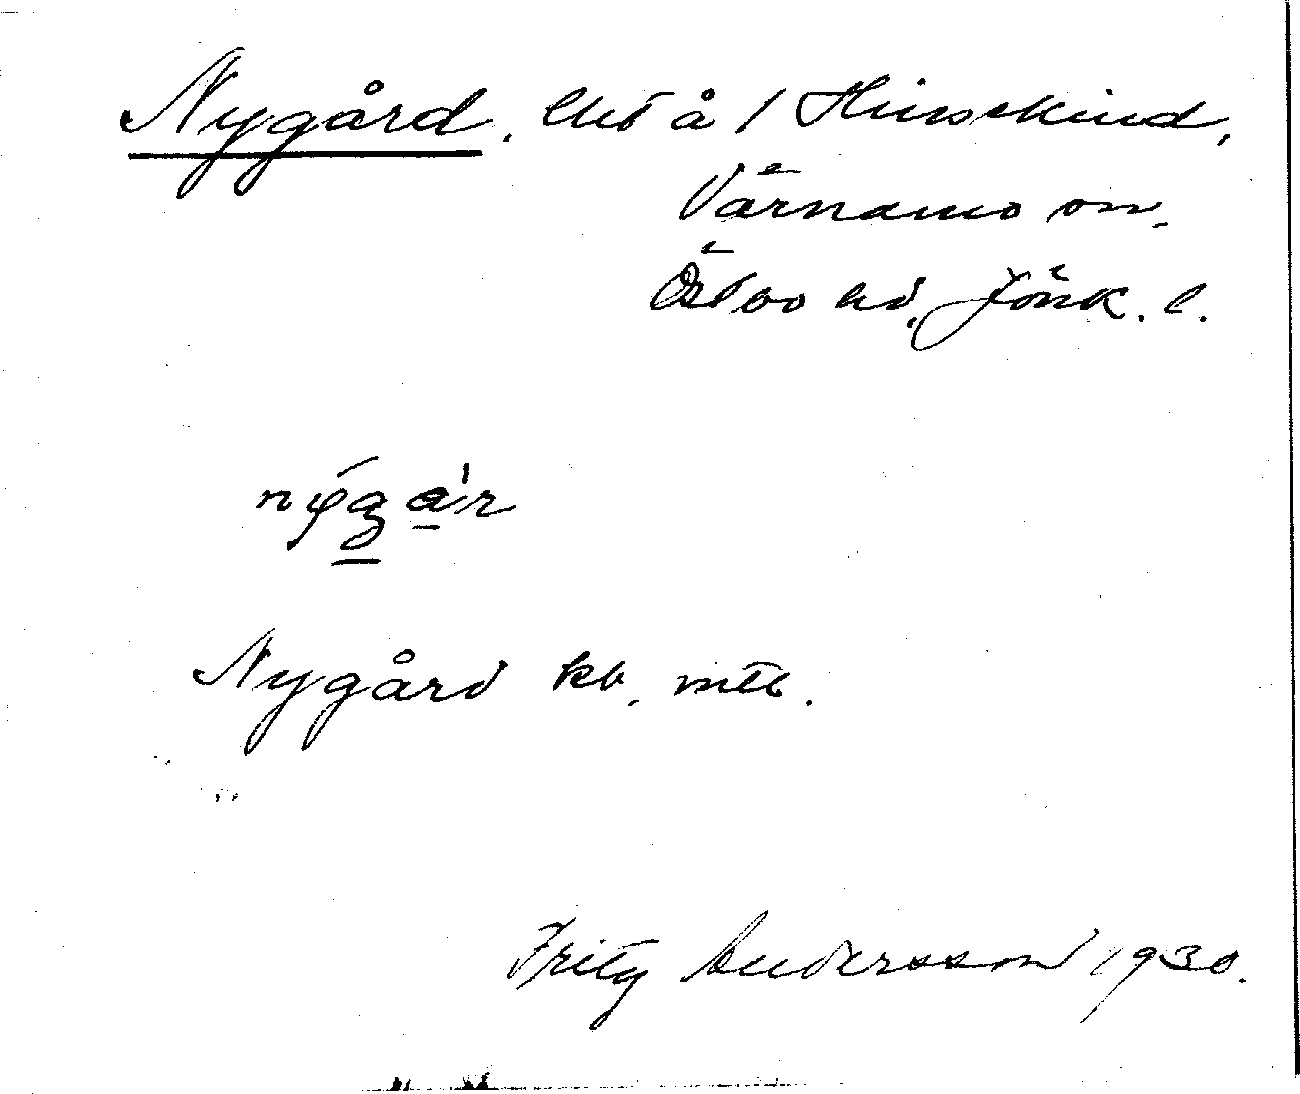 Nygård, lht å 1 Hinsekind,
Värnamo sn,
Östbo hd, Jönk. l.
nýgá'r
Nygård kb, mtl.
Fritz Andersson 1930.